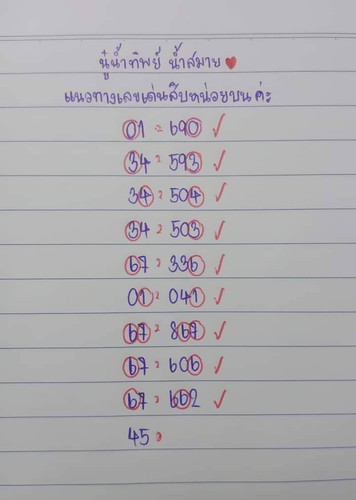 นู๋น้ำทิพย์ น้ำสมาย
แนวทางเลขเด่นสิบหน่วยบน ค่ะ
01 = 690 ✓
34 = 593 ✓
34 = 504 ✓
34 = 503 ✓
67 = 336 ✓
01 = 041 ✓
67 = 867 ✓
67 = 606 ✓
67 = 662 ✓
45 =